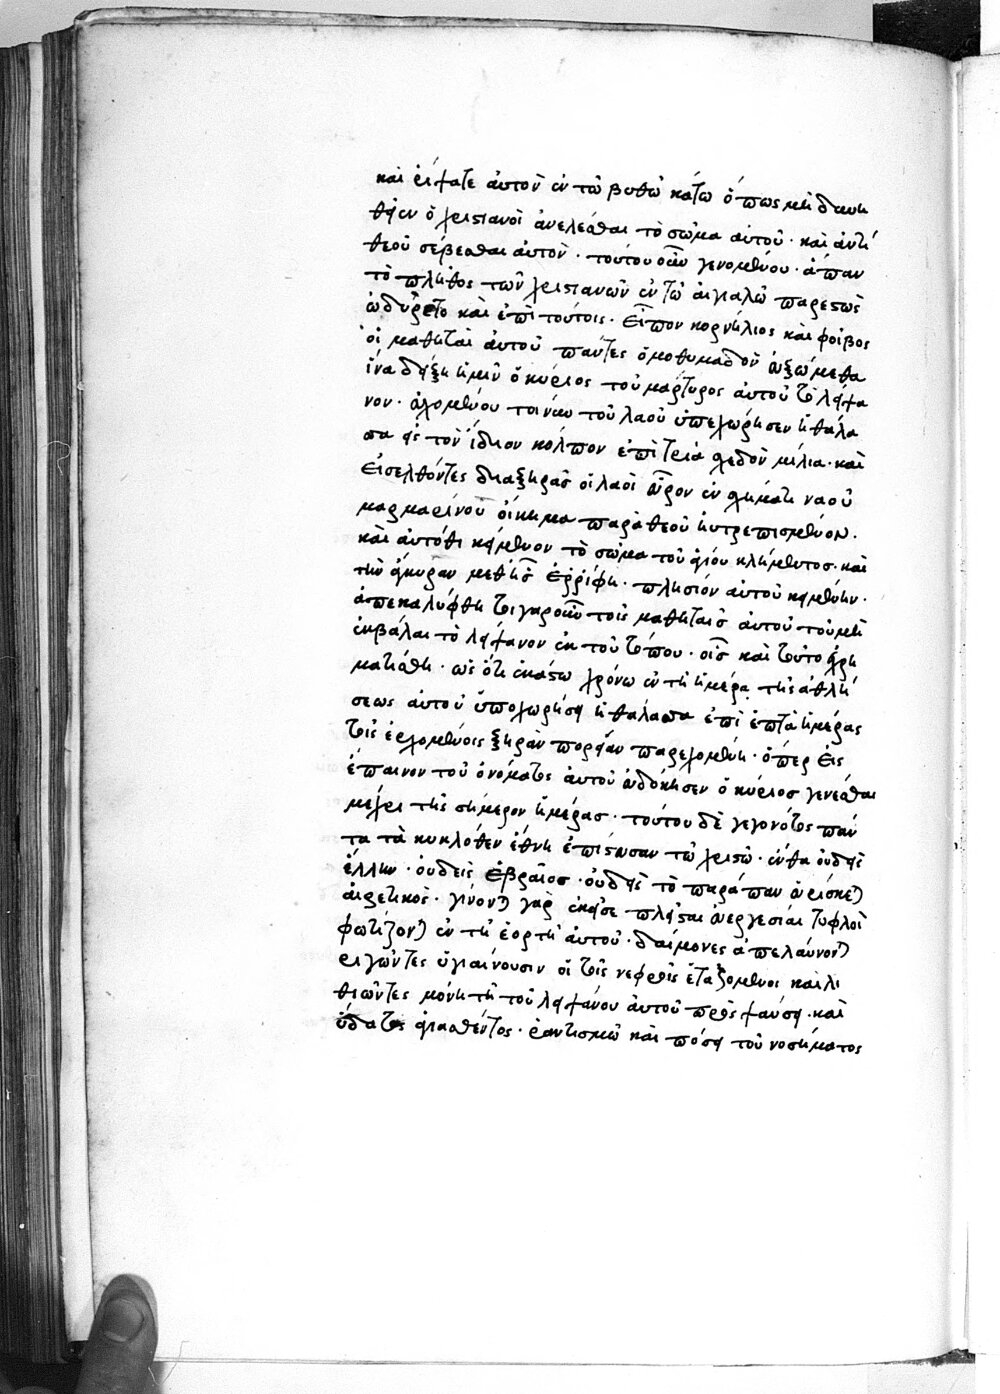 καὶ ῥίψατε αὐτὸν ἐν τῶ βυθῶ κάτω ὅπως μὴ δυνη
θῶσιν ὁ χριστιανοὶ ἀνελέσθαι τὸ σῶμα αὐτοῦ · καὶ ἀντὶ
θεοῦ σέβεσθαι αὐτὸν · τούτου οὖν γενομένου · ἅπαν
τὸ πλῆθος τῶν χριστιανῶν ἐν τῶ αἰγιαλῶ παρεστὼς
ὠδύρετο καὶ ἐπὶ τούτοις · εἶπον κορνήλιος καὶ φοῖβος
οἱ μαθηταὶ αὐτοῦ πάντες ὁμοθυμαδὸν εὐξώμεθα
ἵνα δείξη ἡμῖν ὁ κύριος τοῦ μάρτυρος αὐτοῦ τὸ λείψα
νον · εὐχομένου τοίνυν τοῦ λαοῦ ὑπεχώρησεν ἡ θάλα
σσα εἰς τὸν ἴδιον κόλπον ἐπὶ τρία σχεδὸν μίλια · καὶ
εἰσελθόντες διαξηρᾶσ οἱ λαοὶ εὗρον ἐν σχήματι ναοῦ
μαρμαρίνου οἴκημα παρὰ θεοῦ ηὐτρεπισμένον ·
καὶ αὐτόθι κείμενον τὸ σῶμα τοῦ ἁγίου κλήμεντοσ · καὶ
τὴν ἄγκυραν μεθ' ἧσ ἐρρίφη · πλησίον αὐτοῦ κειμένην ·
ἀπεκαλύφθη τιγαροῦν τοῖς μαθηταῖσ αὐτοῦ τοῦ μὴ
ἐκβάλαι τὸ λείψανον ἐκ τοῦ τόπου · οἷσ καὶ τοῦτο ἐχρη
ματίσθη · ὡς ὅτι ἑκάστω χρόνω ἐν τῆ ἡμέρα τῆς ἀθλή
σεως αὐτοῦ ὑποχωρήσει ἡ θάλασσα ἐπὶ ἑπτὰ ἡμέρας
τοῖς ἐρχομένοις ξηρὰν πορείαν παρεχομένη · ὅπερ εἰς
ἔπαινον τοῦ ὀνόματος αὐτοῦ εὐδόκησεν ὁ κύριοσ γενέσθαι
μέχρι τῆς σήμερον ἡμέρασ · τούτου δὲ γεγονότος πάν
τα τὰ κυκλόθεν ἔθνη ἐπίστευσαν τῶ χριστῶ · ἔνθα οὐδεὶς
ἕλλην · οὐδεὶς ἑβραῖοσ · οὐδεὶς τὸ παράπαν εὑρίσκεται
αἱρετικὸς · γίνονται γὰρ ἐκεῖσε πλεῖσται εὐεργεσίαι τυφλοὶ
φωτίζονται ἐν τῆ ἑορτῆ αὐτοῦ · δαίμονες ἀπελαύνονται
ριγῶντες ὑγιαίνουσιν οἱ τοῖς νεφροῖς ἐταζόμενοι καὶ λι
θιῶντες μόνη τῆ τοῦ λειψάνου αὐτοῦ προσψαύσει · καὶ
ὕδατος ἁγιασθέντος · ῥαντισμῶ καὶ πόσει τοῦ νοσήματος